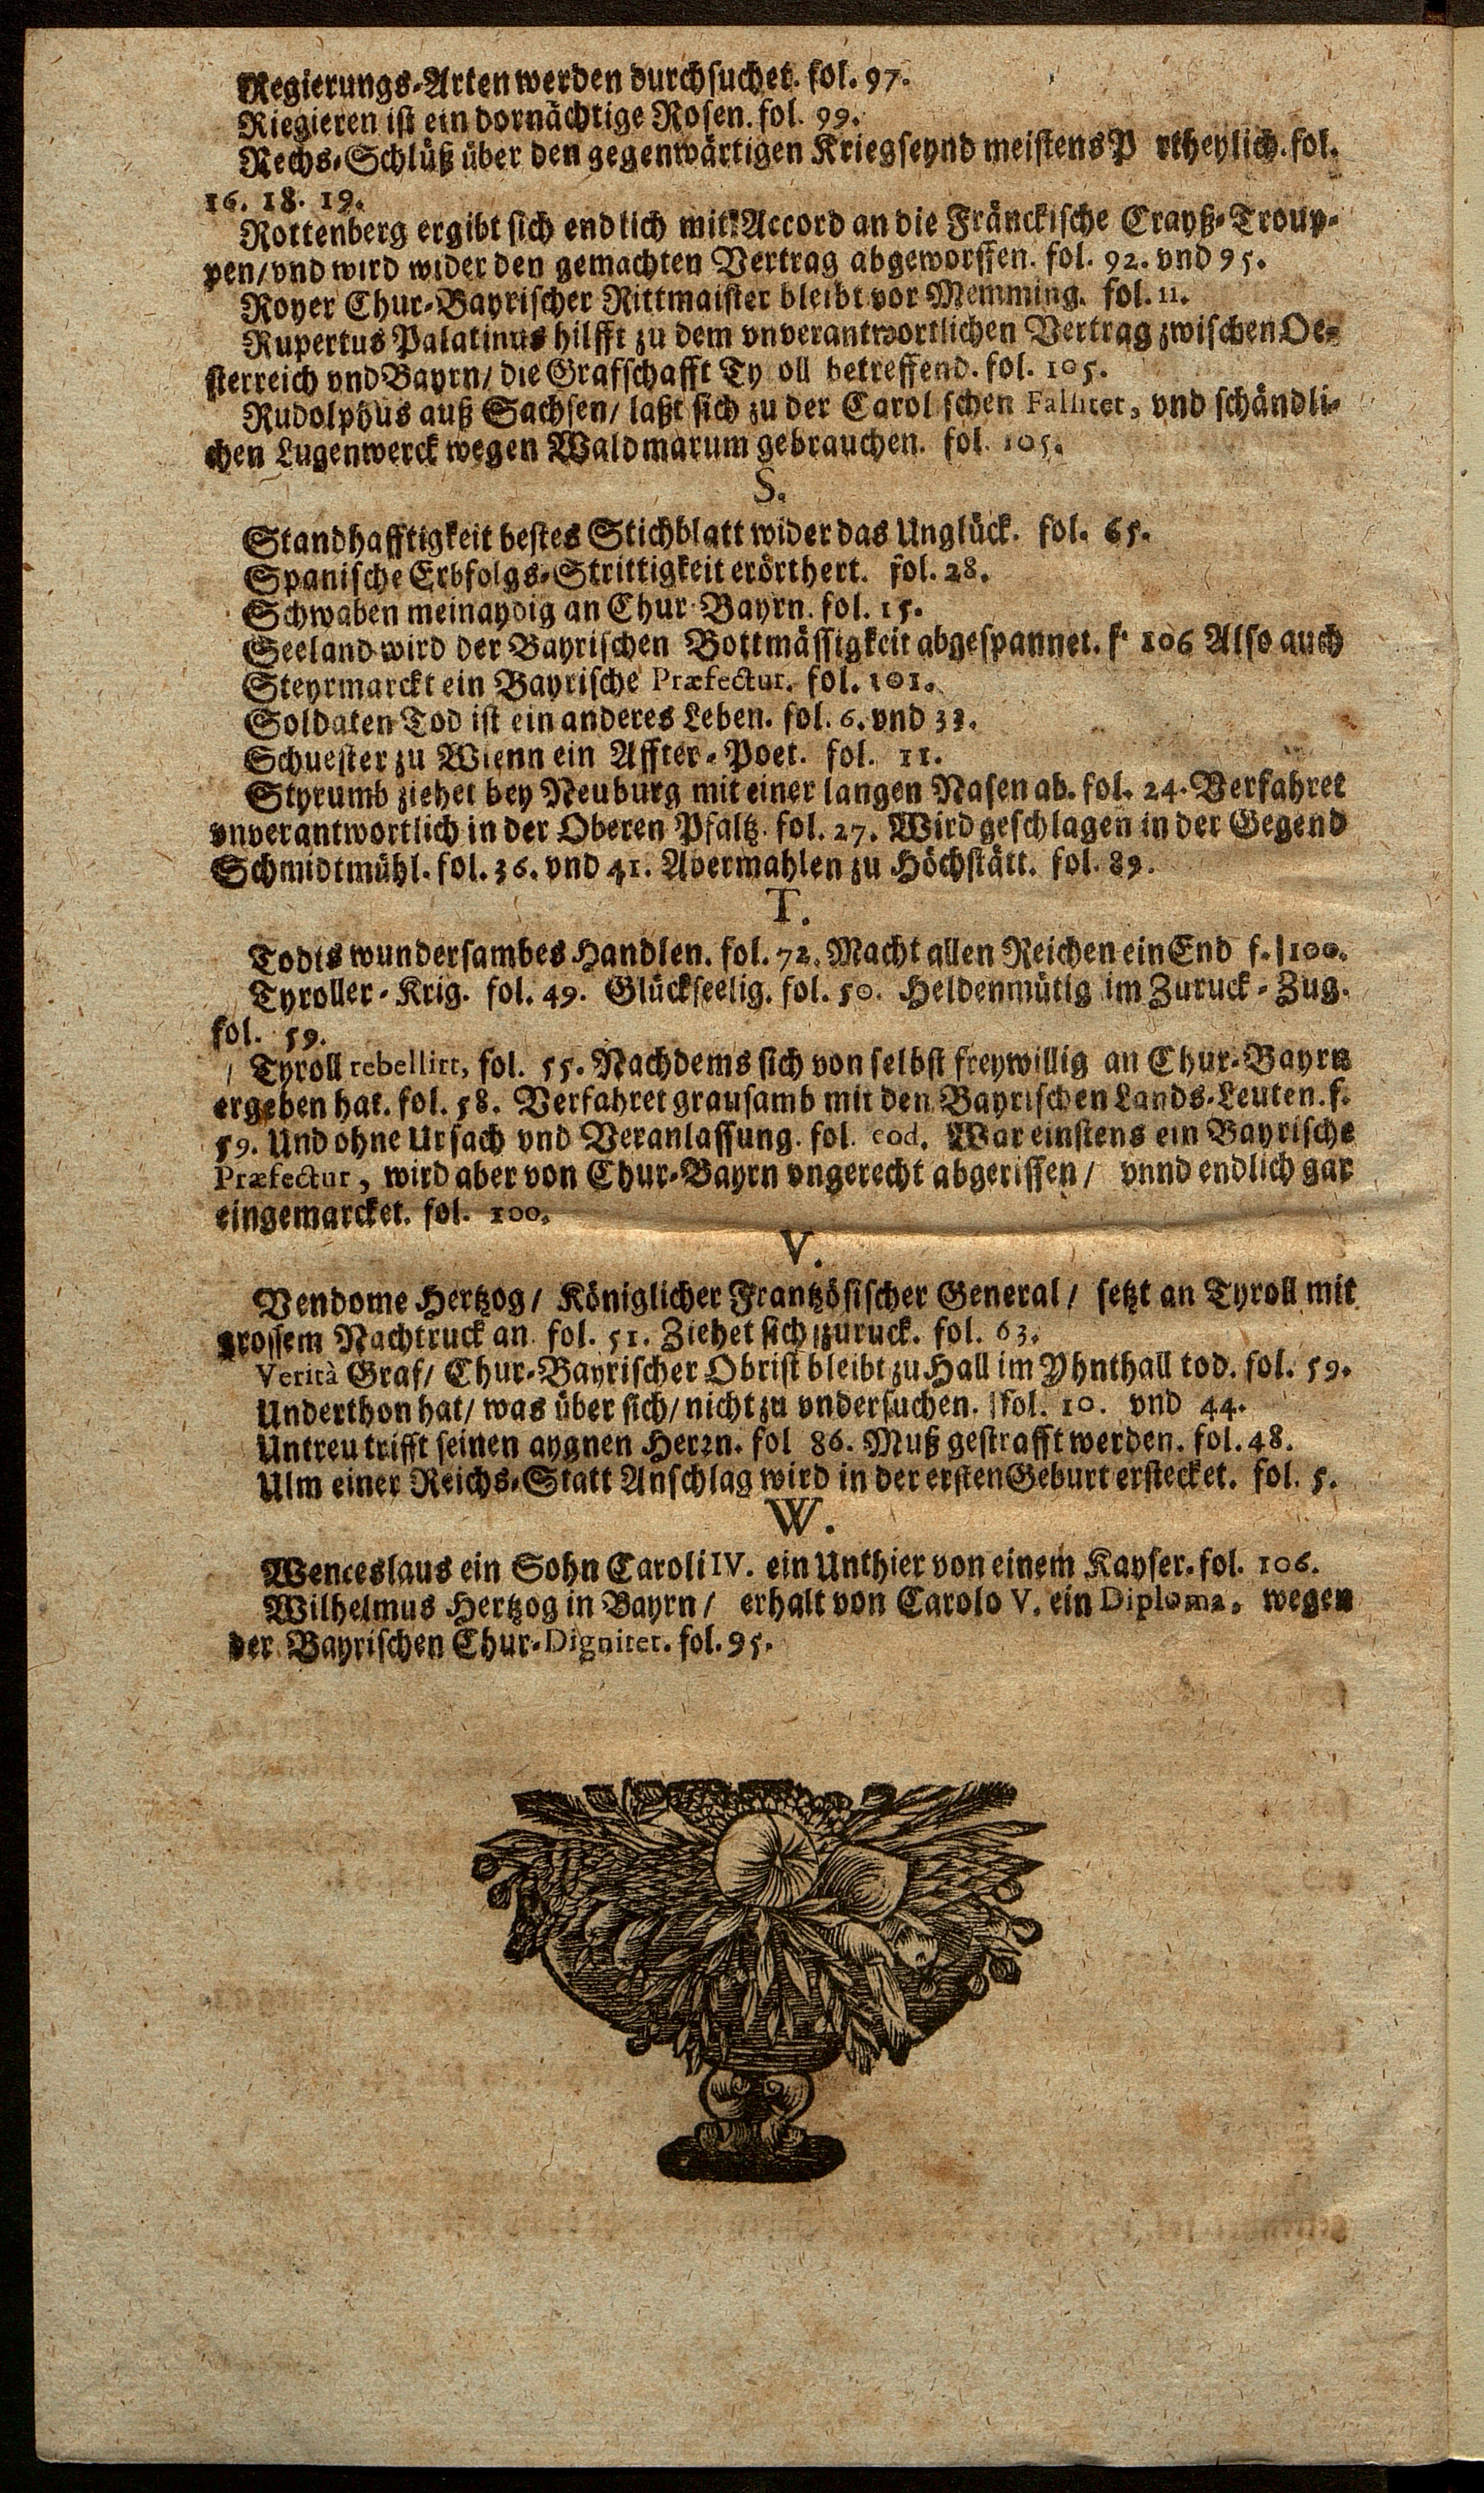 Regierungs-Arten werden durchsuchet. fol. 97.
Riegieren ist ein dornächtige Rosen. fol. 99.
Rechs-Schlüß über den gegenwärtigen Krieg seynd meistens P rtheylich. fol.
16. 18. 19.
Rottenberg ergibt sich endlich mit Accord an die Fränckische Crayß-Troup-
pen/ vnd wird wider den gemachten Vertrag abgeworffen. fol. 92. vnd 95.
Royer Chur-Bayrischer Rittmaister bleibt vor Memming. fol. 11.
Rupertus Palatinus hilfft zu dem vnverantwortlichen Vertrag zwischen Oe-
sterreich vnd Bayrn/ die Grafschafft Ty oll betreffend. fol. 105.
Rudolphus auß Sachsen/ laßt sich zu der Carol schen Fallitet, vnd schändli-
chen Lugenwerck wegen Waldmarum gebrauchen. fol. 105.
S.
Standhafftigkeit bestes Stichblatt wider das Unglück. fol. 65.
Spanische Erbfolgs-Strittigkeit erörthert. fol. 28.
Schwaben meinaydig an Chur-Bayrn. fol. 15.
Seeland wird der Bayrischen Bottmässigkeit abgespannet. f. 106 Also auch
Steyrmarckt ein Bayrische Præfectur. fol. 101.
Soldaten Tod ist ein anderes Leben. fol. 6. vnd 33.
Schuester zu Wienn ein Affter-Poet. fol. 11.
Styrumb ziehet bey Neuburg mit einer langen Nasen ab. fol. 24. Verfahret
vnverantwortlich in der Oberen Pfaltz. fol. 27. Wird geschlagen in der Gegend
Schmidtmühl. fol. 36. vnd 41. Abermahlen zu Höchstätt. fol. 89.
T.
Todts wundersambes Handlen. fol. 72. Macht allen Reichen ein End f. 100.
Tyroller-Krig. fol. 49. Glückseelig. fol. 50. Heldenmütig im Zuruck-Zug.
fol. 59.
Tyroll rebellirt, fol. 55. Nachdems sich von selbst freywillig an Chur-Bayrn
ergeben hat. fol. 58. Verfahret grausamb mit den Bayrischen Lands-Leuten. f.
59. Und ohne Ursach vnd Veranlassung. fol. eod. War einstens ein Bayrische
Præfectur, wird aber von Chur-Bayrn vngerecht abgerissen/ vnnd endlich gar
eingemarcket. fol. 100.
V.
Vendome Hertzog/ Königlicher Frantzösischer General/ setzt an Tyroll mit
grossem Nachtruck an. fol. 51. Ziehet sich zuruck. fol. 63.
Verità Graf/ Chur-Bayrischer Obrist bleibt zu Hall im Yhnthall tod. fol. 59.
Underthon hat/ was über sich/ nicht zu vndersuchen. fol. 10. vnd 44.
Untreu trifft seinen aygnen Herrn. fol 86. Muß gestrafft werden. fol. 48.
Ulm einer Reichs-Statt Anschlag wird in der ersten Geburt erstecket. fol. 5.
W.
Wenceslaus ein Sohn Caroli IV. ein Unthier von einem Kayser. fol. 106.
Wilhelmus Hertzog in Bayrn/ erhalt von Carolo V. ein Diploma, wegen
der Bayrischen Chur-Dignitet. fol. 95.